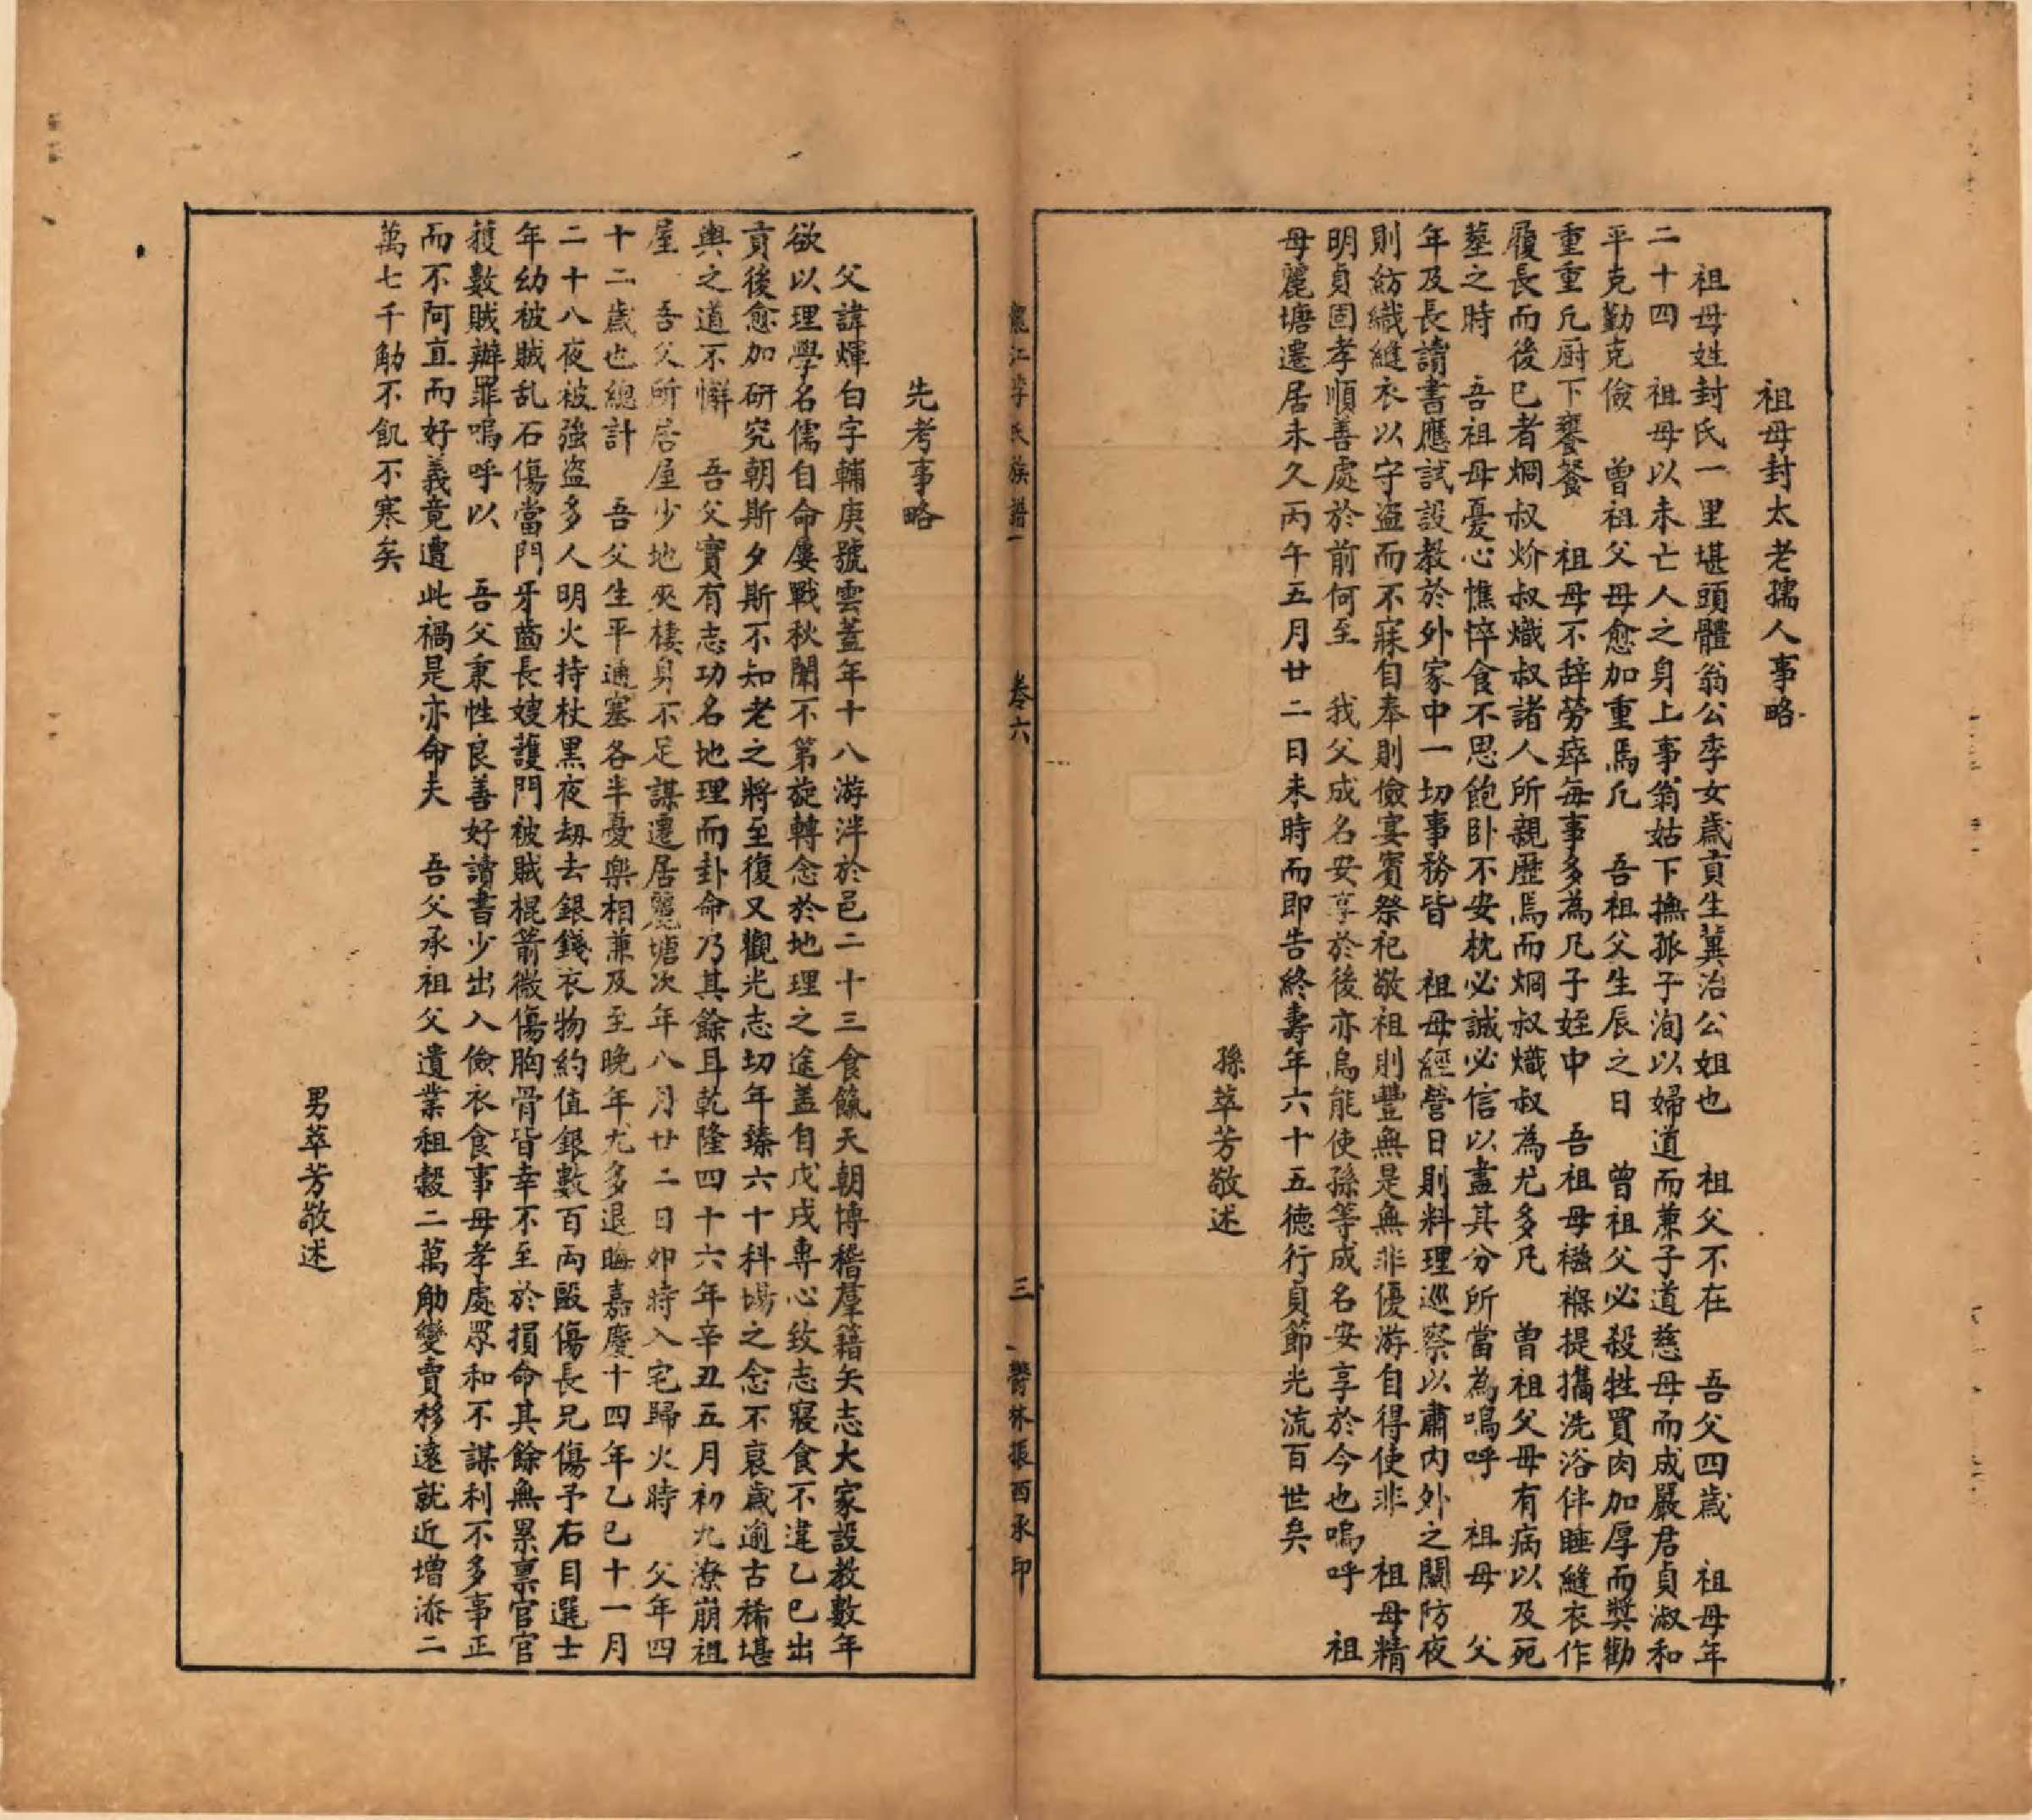 祖母封太老孺人事略
祖母姓封氏一里堪頭體翁公季女歲貢生冀治公姐也 祖父不在 吾父四歲 祖母年
二十四 祖母以未亡人之身上事翁姑下撫孤子洵以婦道而兼子道慈母而成嚴君貞淑和
平克勤克儉 曾祖父母愈加重焉凡 吾祖父生辰之日 曾祖父必殺牲買肉加厚而獎勸
重重凡厨下饔餐 祖母不辞勞瘁每事多為凡子姪中 吾祖母襁褓提攜洗浴伴睡縫衣作
履長而後已者烱叔炌叔熾叔諸人所親歷焉而烱叔熾叔為尤多凡 曾祖父母有病以及死
塟之時 吾祖母憂心憔悴食不思飽卧不安枕必誠必信以盡其分所當為嗚呼 祖母 父
年及長讀書應試設教於外家中一切事務皆 祖母經營日則料理巡察以肅内外之闗防夜
則紡織縫衣以守盗而不寐自奉則儉宴賓祭祀敬祖則豐無是無非優游自得使非 祖母精
明貞固孝順善處於前何至 我父成名安享於後亦烏能使孫等成名安享於今也嗚呼 祖
母麗塘遷居未久丙午五月廿二日未時而即告終壽年六十五德行貞節光流百世矣
孫萃芳敬述
江李氏族譜 卷六 三 欝林振西承印
先考事略
父諱煇白字輔庚號雲蓋年十八游泮於邑二十三食餼天朝博稽羣籍矢志大家設教數年
欲以理學名儒自命屢戰秋闈不第旋轉念於地理之途盖自戊戌専心致志寢食不違乙巳出
貢後愈加研究朝斯夕斯不知老之將至復又觀光志切年臻六十科塲之念不衰歲逾古稀堪
輿之道不懈 吾父實有志功名地理而卦命乃其餘耳乾隆四十六年辛丑五月初九潦崩祖
屋 吾父所居屋少地夾棲身不足謀遷居麗塘次年八月廿二日卯時入宅歸火時 父年四
十二歲也總計 吾父生平通塞各半憂樂相兼及至晚年尤多退晦嘉慶十四年乙巳十一月
二十八夜被強盗多人明火持杖黑夜刼去銀錢衣物約值銀數百両毆傷長兄傷予右目選士
年幼被賊乱石傷當門牙齒長嫂護門被賊棍箭微傷胸骨皆幸不至於損命其餘無累禀官官
獲數賊辦罪嗚呼以 吾父秉性良善好讀書少出入儉衣食事母孝處眾和不謀利不多事正
而不阿直而好義竟遭此禍是亦命夫 吾父承祖父遺業租穀二萬觔變賣移遠就近增添二
萬七千觔不飢不寒矣
男萃芳敬述